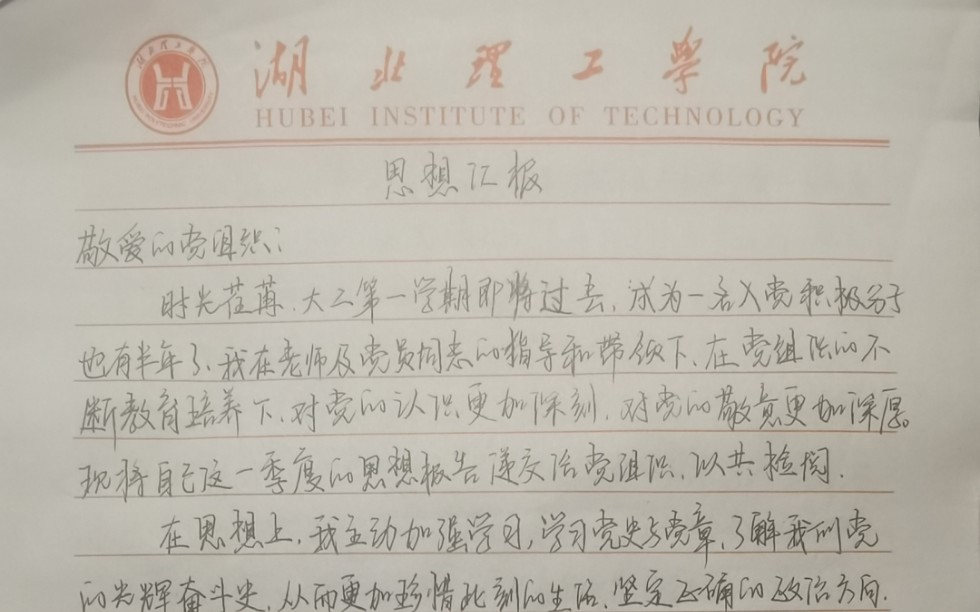 湖北理工学院
HUBEI INSTITUTE OF TECHNOLOGY
思想汇报
敬爱的党组织：
时光荏苒，大二第一学期即将过去，成为一名入党积极分子
也有半年了，我在老师及党员同志的指导和带领下、在党组织的不
断教育培养下，对党的认识更加深刻，对党的敬意更加深厚。
现将自己这一季度的思想报告递交给党组织，以共检阅．
在思想上，我主动加强学习，学习党史与党章，了解我们党
的光辉奋斗史，从而更加珍惜此刻的生活，坚定正确的政治方向．